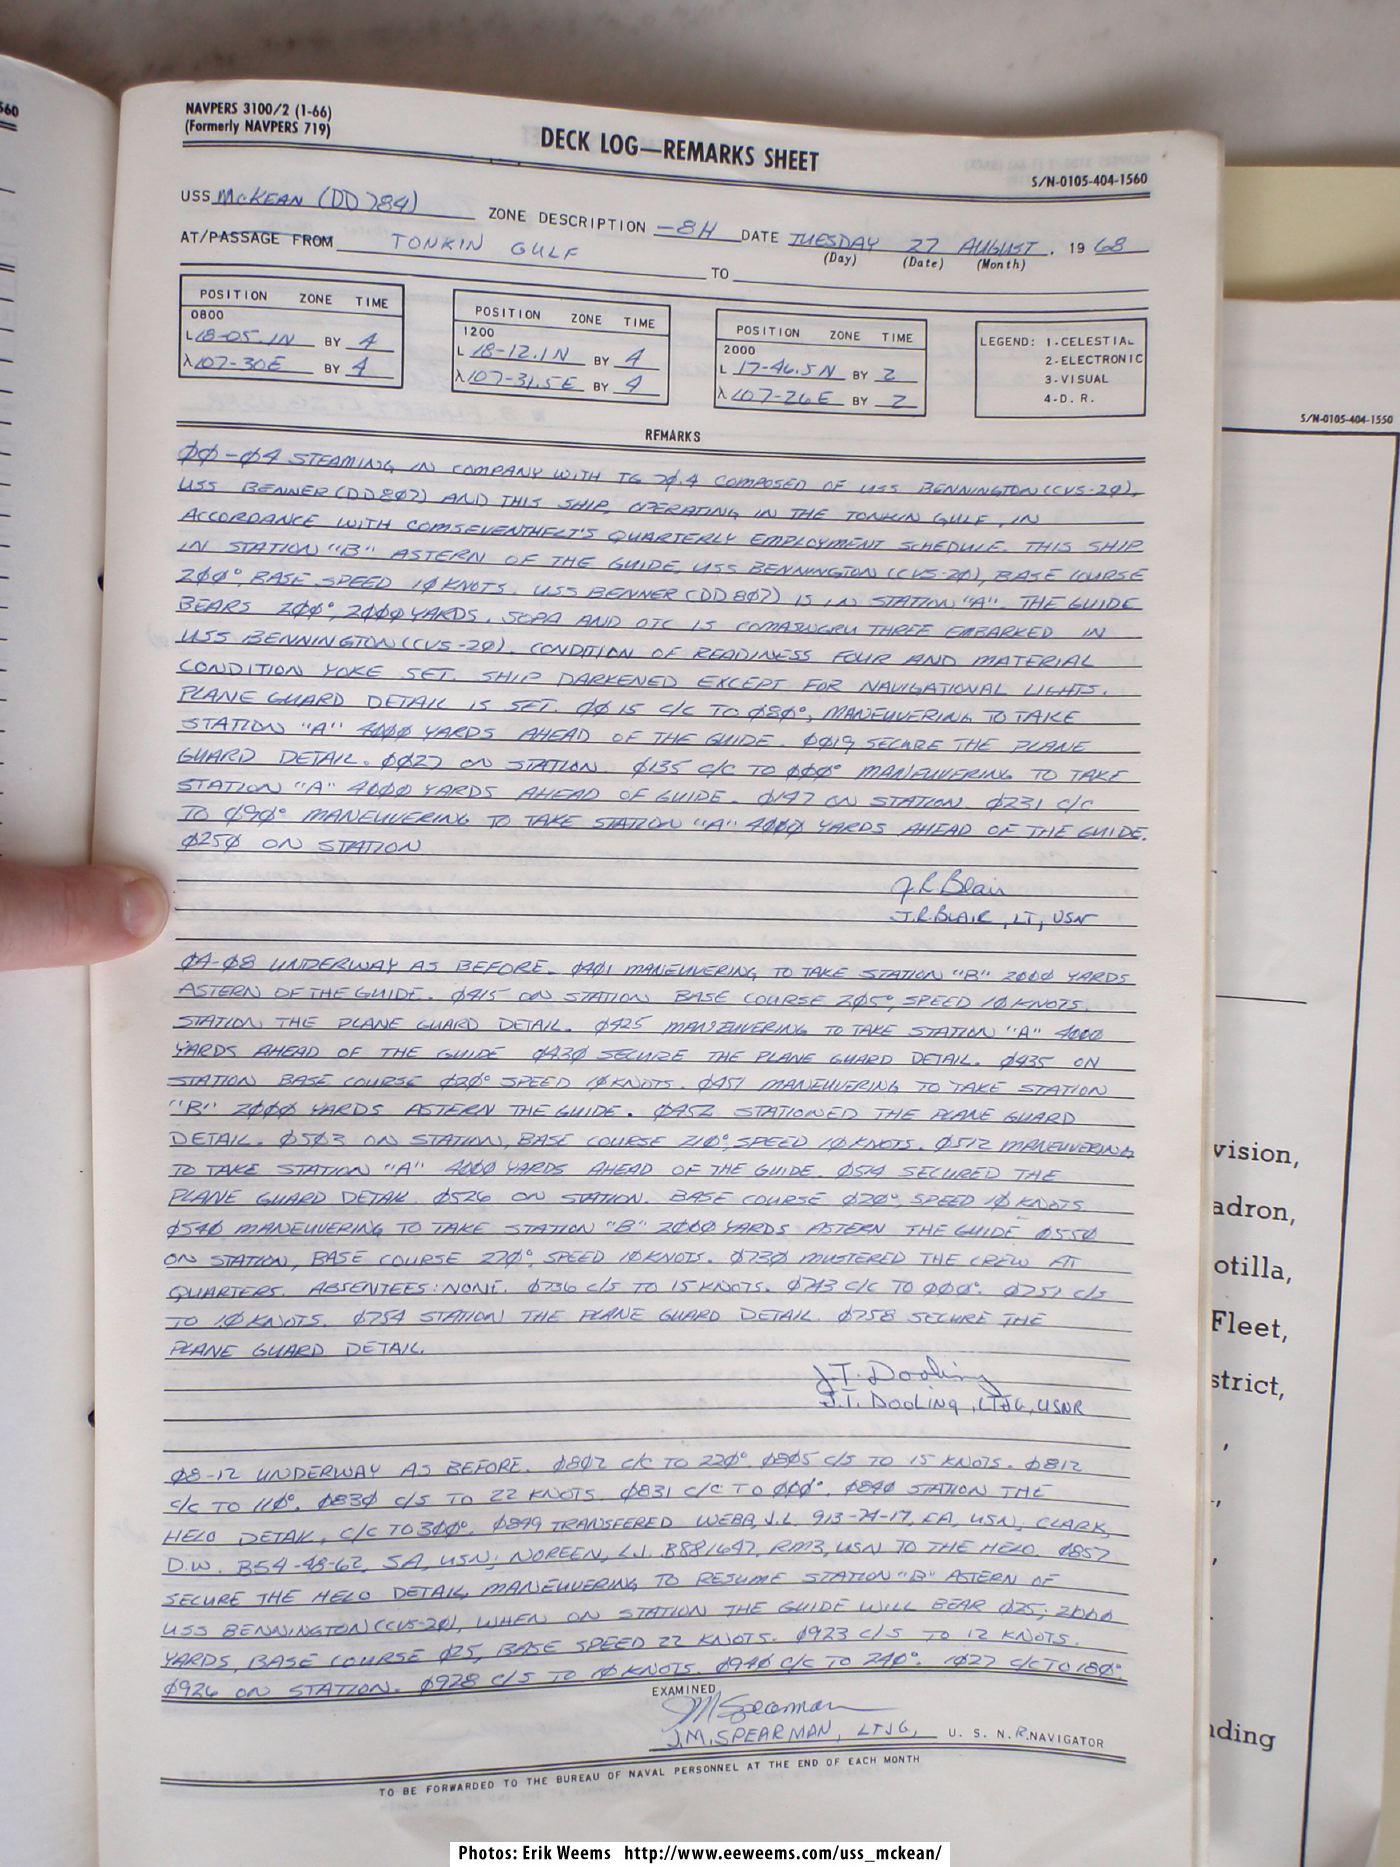 560
NAVPERS 3100/2 (1-66)
(Formerly NAVPERS 719)
DECK LOG—REMARKS SHEET
S/N-0105-404-1560
USS McKEAN (DD 784) ZONE DESCRIPTION -8H DATE TUESDAY 27 AUGUST, 19 68
(Day) (Date) (Month)
AT/PASSAGE FROM TONKIN GULF TO
POSITION ZONE TIME
0800
L 18-05.1N BY 4
λ 107-30E BY 4
POSITION ZONE TIME
1200
L 18-12.1N BY 4
λ 107-31.5E BY 4
POSITION ZONE TIME
2000
L 17-46.5N BY 2
λ 107-26E BY 2
LEGEND: 1-CELESTIAL
2-ELECTRONIC
3-VISUAL
4-D. R.
REMARKS
00-04 STEAMING IN COMPANY WITH TG 70.4 COMPOSED OF USS BENNINGTON (CVS-20),
USS BENNER (DD 807) AND THIS SHIP, OPERATING IN THE TONKIN GULF, IN
ACCORDANCE WITH COMSEVENTHFLT'S QUARTERLY EMPLOYMENT SCHEDULE. THIS SHIP
IN STATION "B" ASTERN OF THE GUIDE, USS BENNINGTON (CVS-20), BASE COURSE
200°, BASE SPEED 10 KNOTS. USS BENNER (DD 807) IS IN STATION "A". THE GUIDE
BEARS 200°, 2000 YARDS. SOPA AND OTC IS COMASWGRU THREE EMBARKED IN
USS BENNINGTON (CVS-20). CONDITION OF READINESS FOUR AND MATERIAL
CONDITION YOKE SET. SHIP DARKENED EXCEPT FOR NAVIGATIONAL LIGHTS.
PLANE GUARD DETAIL IS SET. 0015 C/C TO 080°, MANEUVERING TO TAKE
STATION "A" 4000 YARDS AHEAD OF THE GUIDE. 0019 SECURE THE PLANE
GUARD DETAIL. 0027 ON STATION. 0135 C/C TO 000° MANEUVERING TO TAKE
STATION "A" 4000 YARDS AHEAD OF GUIDE. 0147 ON STATION. 0231 C/C
TO 090° MANEUVERING TO TAKE STATION "A" 4000 YARDS AHEAD OF THE GUIDE.
0250 ON STATION
J.R. Blair
J.R. BLAIR, LT, USN
04-08 UNDERWAY AS BEFORE. 0401 MANEUVERING TO TAKE STATION "B" 2000 YARDS
ASTERN OF THE GUIDE. 0415 ON STATION BASE COURSE 205°, SPEED 10 KNOTS.
STATION THE PLANE GUARD DETAIL. 0425 MANEUVERING TO TAKE STATION "A" 4000
YARDS AHEAD OF THE GUIDE 0430 SECURE THE PLANE GUARD DETAIL. 0435 ON
STATION BASE COURSE 020° SPEED 10 KNOTS. 0451 MANEUVERING TO TAKE STATION
"B" 2000 YARDS ASTERN THE GUIDE. 0452 STATIONED THE PLANE GUARD
DETAIL. 0503 ON STATION, BASE COURSE 210°, SPEED 10 KNOTS. 0512 MANEUVERING
TO TAKE STATION "A" 4000 YARDS AHEAD OF THE GUIDE. 0514 SECURED THE
PLANE GUARD DETAIL. 0526 ON STATION. BASE COURSE 020°, SPEED 10 KNOTS
0540 MANEUVERING TO TAKE STATION "B" 2000 YARDS ASTERN THE GUIDE 0550
ON STATION, BASE COURSE 270°, SPEED 10 KNOTS. 0730 MUSTERED THE CREW AT
QUARTERS. ABSENTEES: NONE. 0736 C/S TO 15 KNOTS. 0743 C/C TO 000°. 0751 C/S
TO 10 KNOTS. 0754 STATION THE PLANE GUARD DETAIL. 0758 SECURE THE
PLANE GUARD DETAIL.
J.T. Dooling
J.T. DOOLING, LTJG, USNR
08-12 UNDERWAY AS BEFORE. 0802 C/C TO 220° 0805 C/S TO 15 KNOTS. 0812
C/C TO 110°. 0830 C/S TO 22 KNOTS. 0831 C/C TO 000°. 0840 STATION THE
HELO DETAIL, C/C TO 300°. 0849 TRANSFERED WEBB, J.L. 913-74-17, FA, USN; CLARK,
D.W. B54-48-62, SA, USN; NOREEN, L.J. B881647, RM3, USN TO THE HELO. 0857
SECURE THE HELO DETAIL, MANEUVERING TO RESUME STATION "B" ASTERN OF
USS BENNINGTON (CVS-20), WHEN ON STATION THE GUIDE WILL BEAR 025; 2000
YARDS, BASE COURSE 025, BASE SPEED 22 KNOTS. 0923 C/S TO 12 KNOTS.
0926 ON STATION. 0928 C/S TO 10 KNOTS. 0940 C/C TO 240°. 1027 C/C TO 180°
EXAMINED
JM Spearman
J.M. SPEARMAN, LTJG, U. S. N. R. NAVIGATOR
TO BE FORWARDED TO THE BUREAU OF NAVAL PERSONNEL AT THE END OF EACH MONTH
S/N-0105-404-1550
vision,
adron,
otilla,
Fleet,
strict,
nding
Photos: Erik Weems http://www.eeweems.com/uss_mckean/